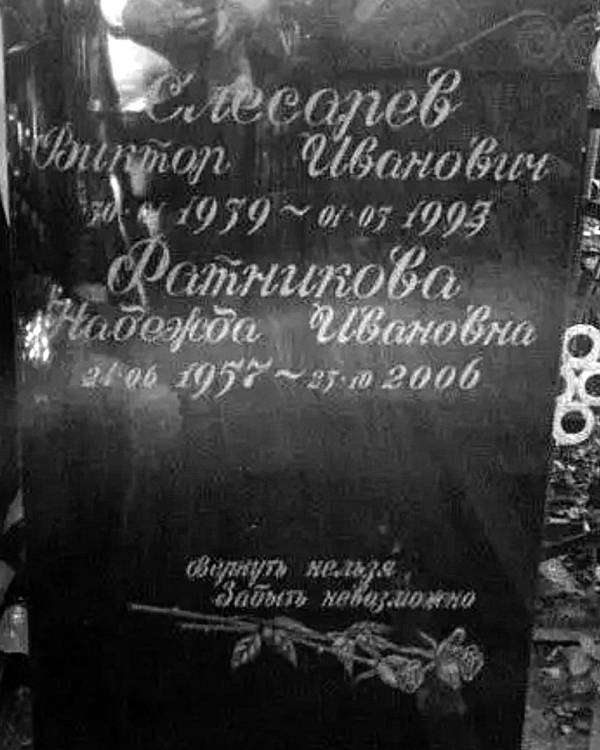 Слесарев
Виктор Иванович
1959 ~ 01·03 1993
Ратникова
Надежда Ивановна
21·06 1957 ~ 23·10 2006
Вернуть нельзя,
Забыть невозможно